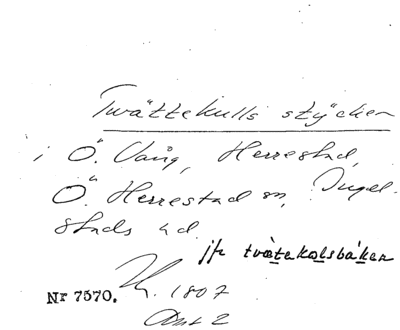 Twättekulls stycken
i Ö. Vång, Herrestad,
Ö. Herrestad sn, Ingel-
stads hd.
jfr tvàtekolsbákən
Nr 7570. 1807
Akt 2